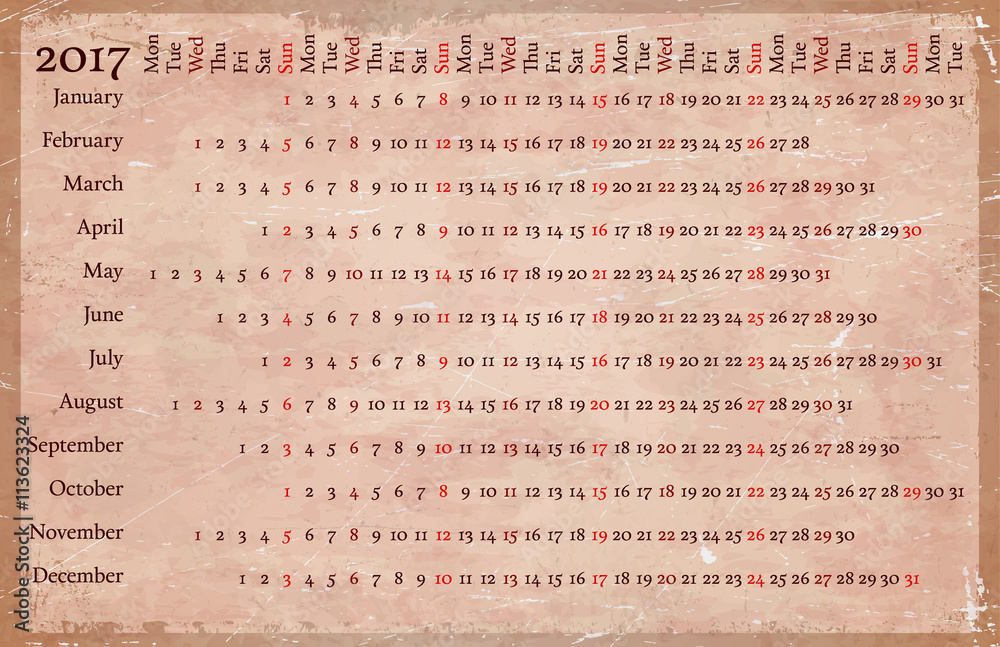 2017 Mon Tue Wed Thu Fri Sat Sun Mon Tue Wed Thu Fri Sat Sun Mon Tue Wed Thu Fri Sat Sun Mon Tue Wed Thu Fri Sat Sun Mon Tue Wed Thu Fri Sat Sun Mon Tue
January 1 2 3 4 5 6 7 8 9 10 11 12 13 14 15 16 17 18 19 20 21 22 23 24 25 26 27 28 29 30 31
February 1 2 3 4 5 6 7 8 9 10 11 12 13 14 15 16 17 18 19 20 21 22 23 24 25 26 27 28
March 1 2 3 4 5 6 7 8 9 10 11 12 13 14 15 16 17 18 19 20 21 22 23 24 25 26 27 28 29 30 31
April 1 2 3 4 5 6 7 8 9 10 11 12 13 14 15 16 17 18 19 20 21 22 23 24 25 26 27 28 29 30
May 1 2 3 4 5 6 7 8 9 10 11 12 13 14 15 16 17 18 19 20 21 22 23 24 25 26 27 28 29 30 31
June 1 2 3 4 5 6 7 8 9 10 11 12 13 14 15 16 17 18 19 20 21 22 23 24 25 26 27 28 29 30
July 1 2 3 4 5 6 7 8 9 10 11 12 13 14 15 16 17 18 19 20 21 22 23 24 25 26 27 28 29 30 31
August 1 2 3 4 5 6 7 8 9 10 11 12 13 14 15 16 17 18 19 20 21 22 23 24 25 26 27 28 29 30 31
September 1 2 3 4 5 6 7 8 9 10 11 12 13 14 15 16 17 18 19 20 21 22 23 24 25 26 27 28 29 30
October 1 2 3 4 5 6 7 8 9 10 11 12 13 14 15 16 17 18 19 20 21 22 23 24 25 26 27 28 29 30 31
November 1 2 3 4 5 6 7 8 9 10 11 12 13 14 15 16 17 18 19 20 21 22 23 24 25 26 27 28 29 30
December 1 2 3 4 5 6 7 8 9 10 11 12 13 14 15 16 17 18 19 20 21 22 23 24 25 26 27 28 29 30 31
Adobe Stock | #113623324